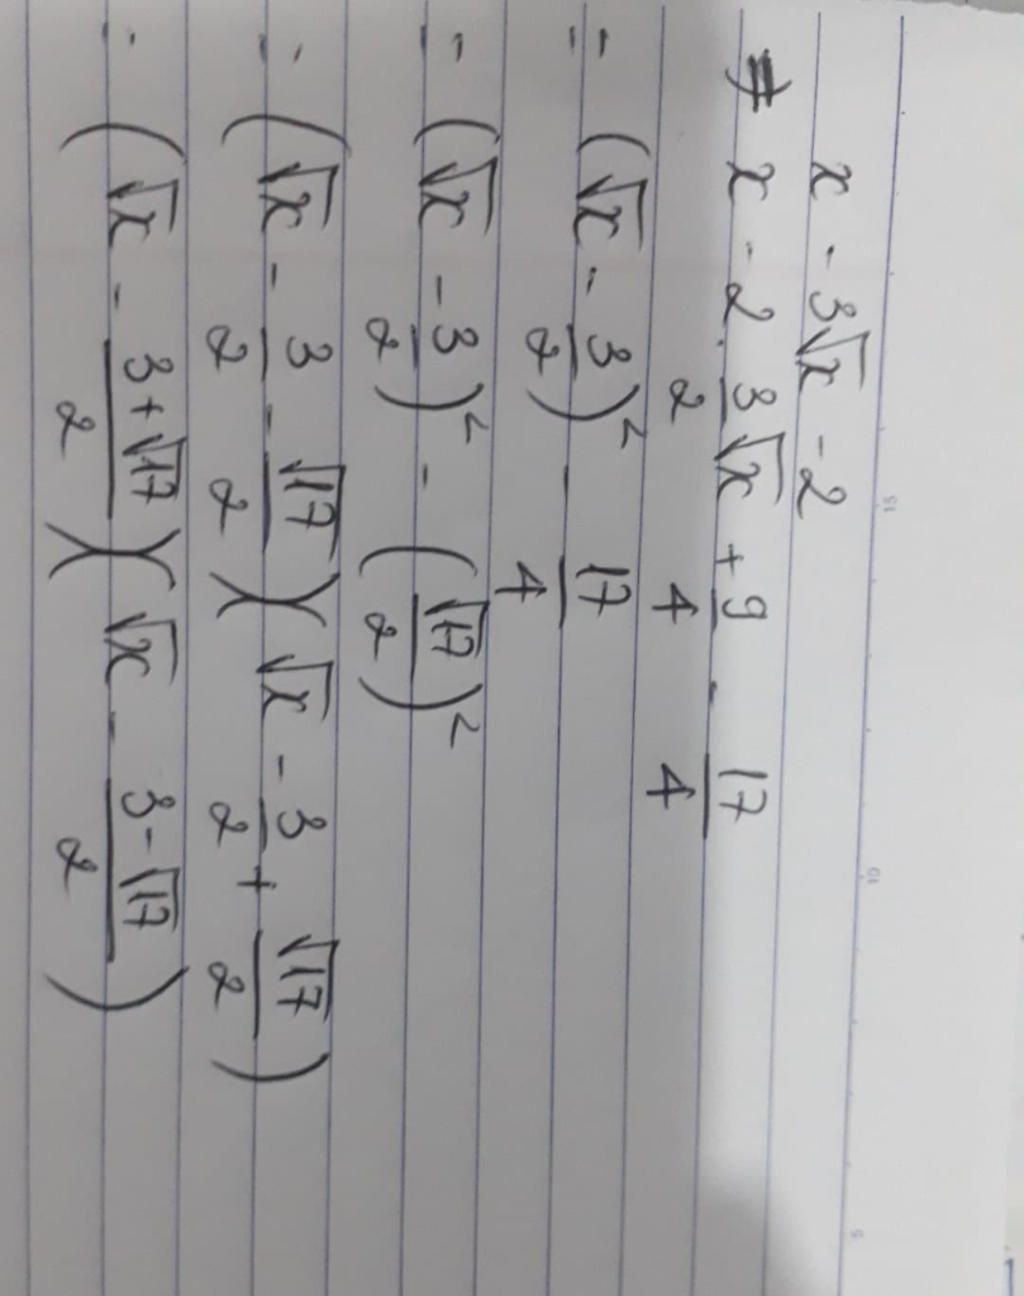 x - 3√x - 2
= x - 2. 3/2 √x + 9/4 - 17/4
= (√x - 3/2)² - 17/4
= (√x - 3/2)² - (√17/2)²
= (√x - 3/2 - √17/2)(√x - 3/2 + √17/2)
= (√x - 3+√17/2)(√x - 3-√17/2)